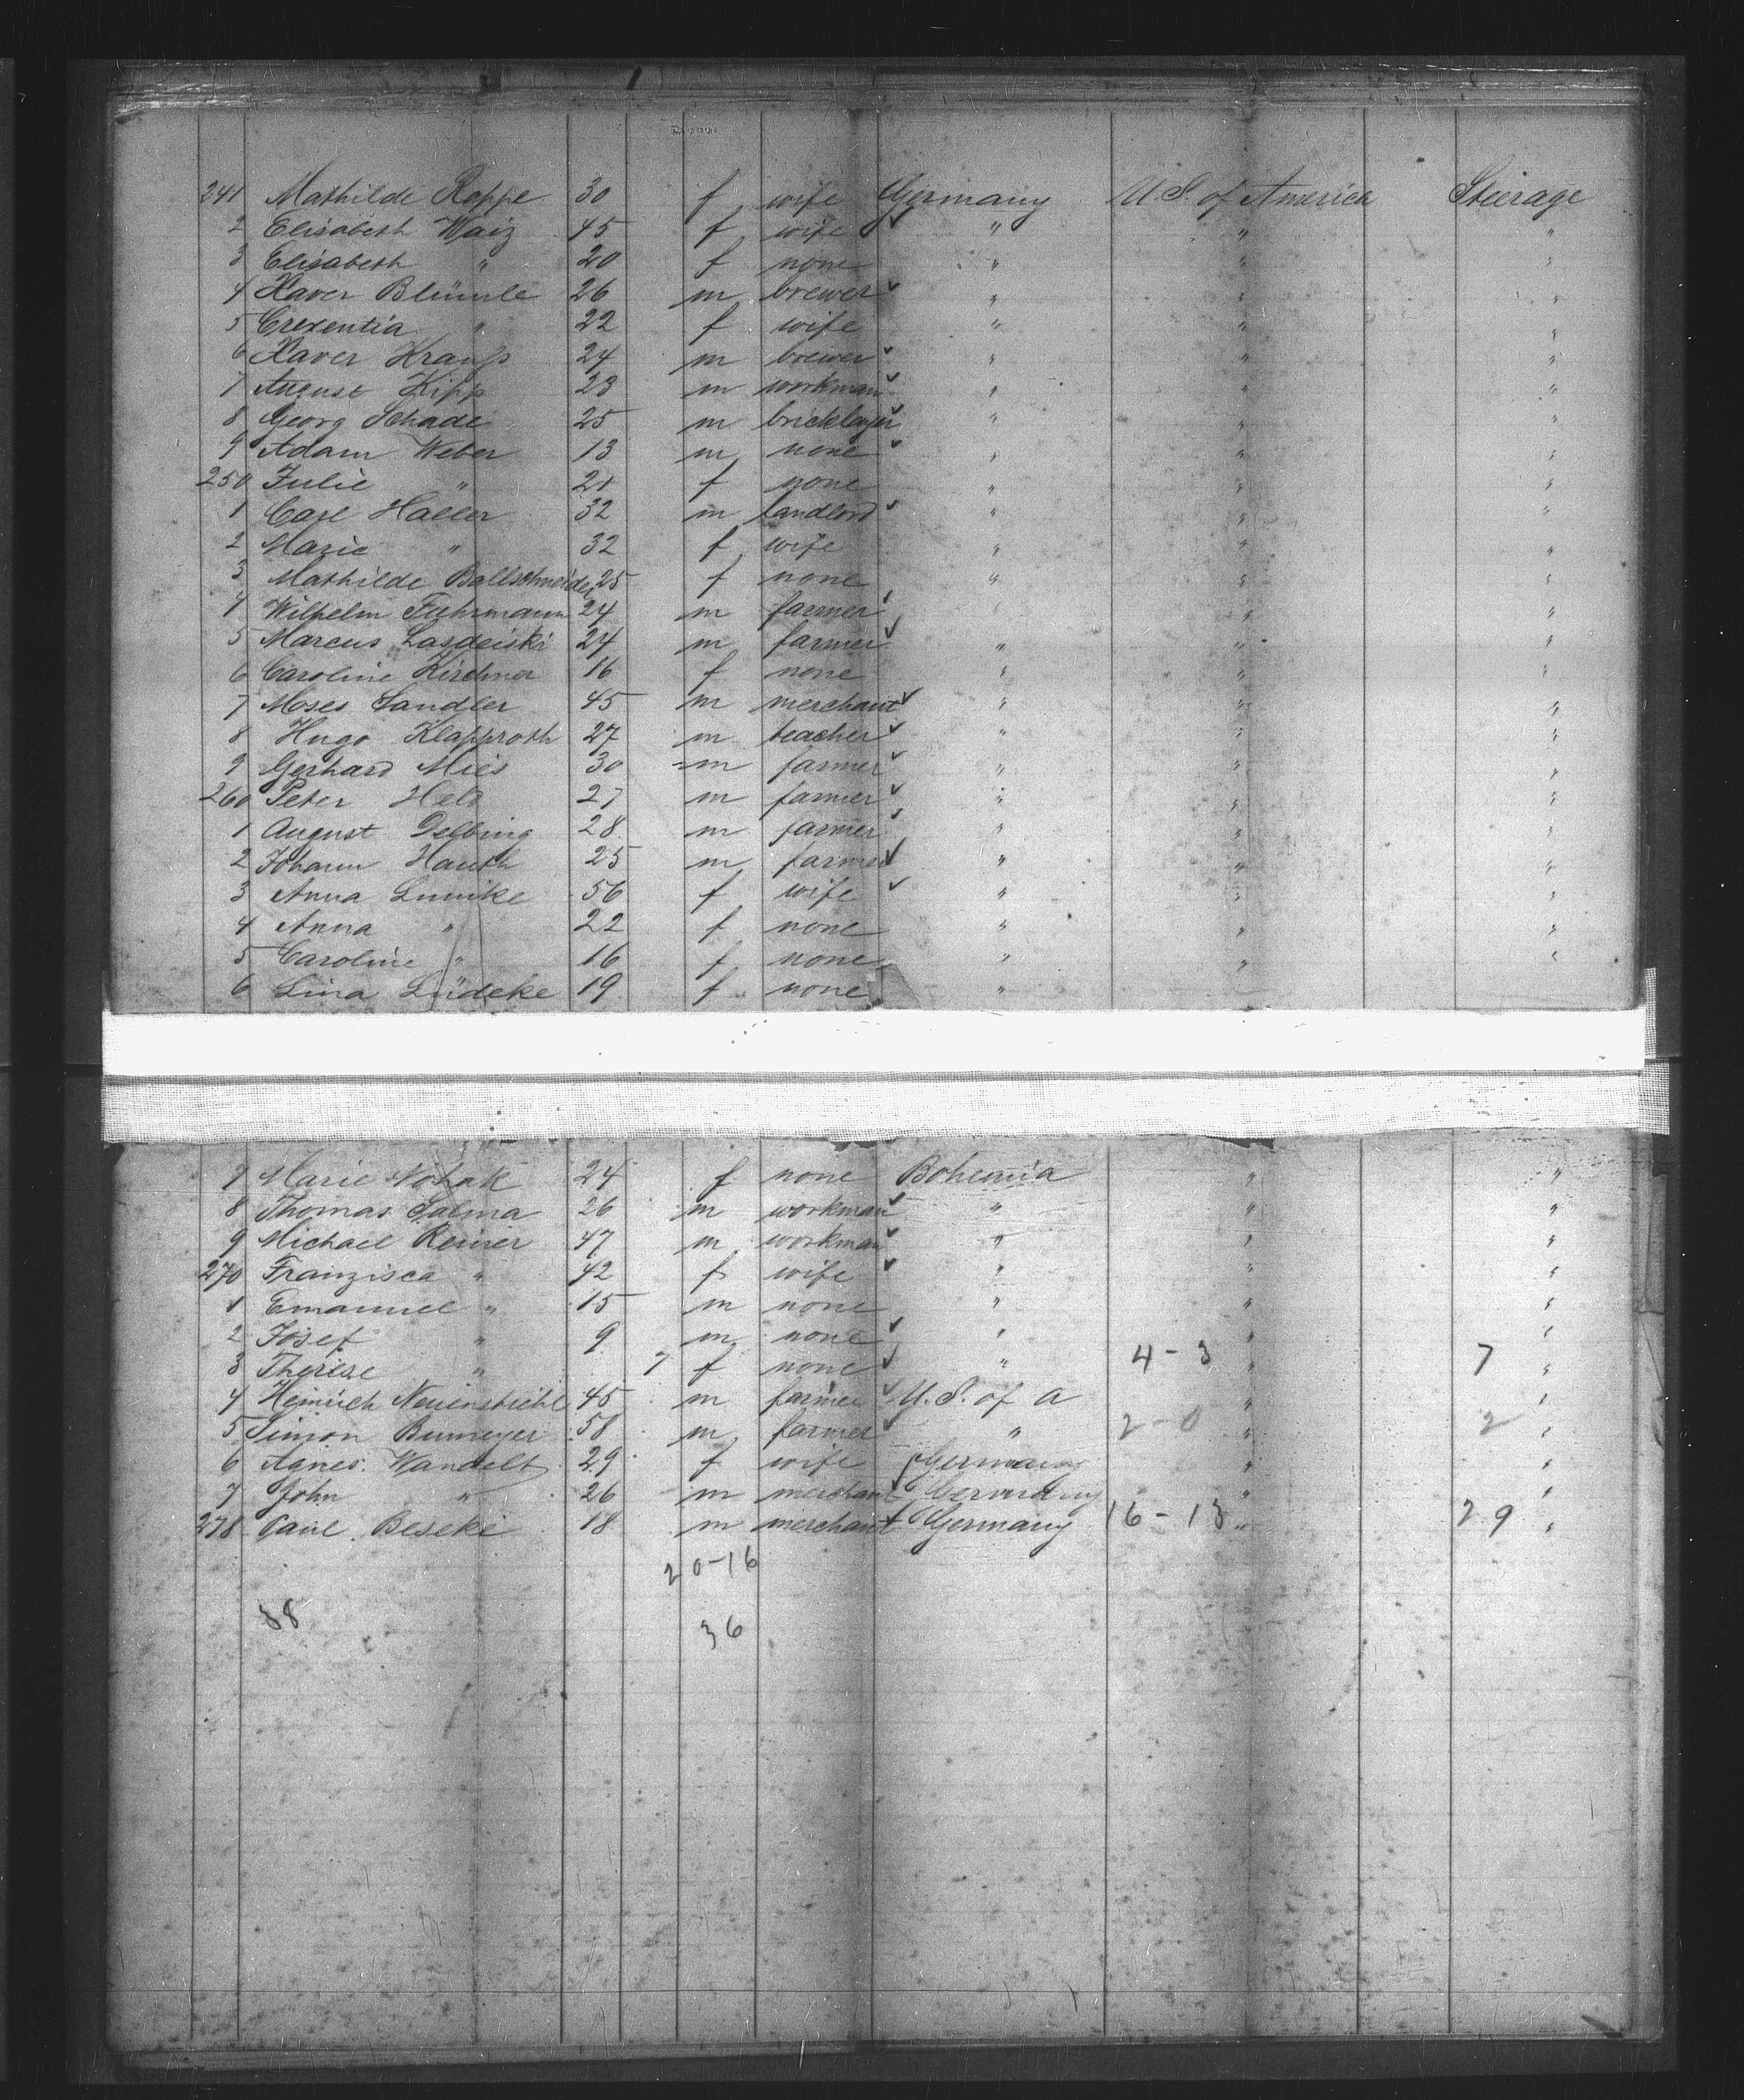 241 Mathilde Rappe 30 f wife Germany U.S. of America Steerage
2 Elisabeth Waiz 45 f wife " " "
3 Elisabeth " 20 f none " " "
4 Xaver Blümle 26 m brewer " " "
5 Crexentia " 22 f wife " " "
6 Xaver Krauss 24 m brewer " " "
7 August Kipp 23 m workman " " "
8 Georg Schade 25 m bricklayer " " "
9 Adam Weber 13 m none " " "
250 Julie " 21 f none " " "
1 Carl Haller 32 m landlord " " "
2 Marie " 32 f wife " " "
3 Mathilde Ballschmeider 25 f none " " "
4 Wilhelm Fuhrmann 24 m farmer " " "
5 Marcus Lasdeiski 24 m farmer " " "
6 Caroline Kirchner 16 f none " " "
7 Moses Sandler 45 m merchant " " "
8 Hugo Klapproth 27 m teacher " " "
9 Gerhard Mies 30 m farmer " " "
260 Peter Held 27 m farmer " " "
1 August Delbing 28 m farmer " " "
2 Johann Hauth 25 m farmer " " "
3 Anna Lumike 56 f wife " " "
4 Anna " 22 f none " " "
5 Caroline " 16 f none " " "
6 Lina Lüdeke 19 f none "
7 Marie Novak 24 f none Bohemia " "
8 Thomas Salma 26 m workman " " "
9 Michael Reiner 47 m workman " " "
270 Franzisca " 42 f wife " " "
1 Emanuel " 15 m none " " "
2 Josef " 9 m none " " "
3 Therese " 7 f none " 4-3 " 7 "
4 Heinrich 45 m farmer U.S. of a " "
5 Simon Bumeyer 58 m farmer " 2-0 " 2 "
6 Agnes Wandelt 29 f wife Germany " "
7 John " 26 m merchant Germany " "
278 Paul Beseke 18 m merchant Germany 16-13 " 29 "
20-16
38
36